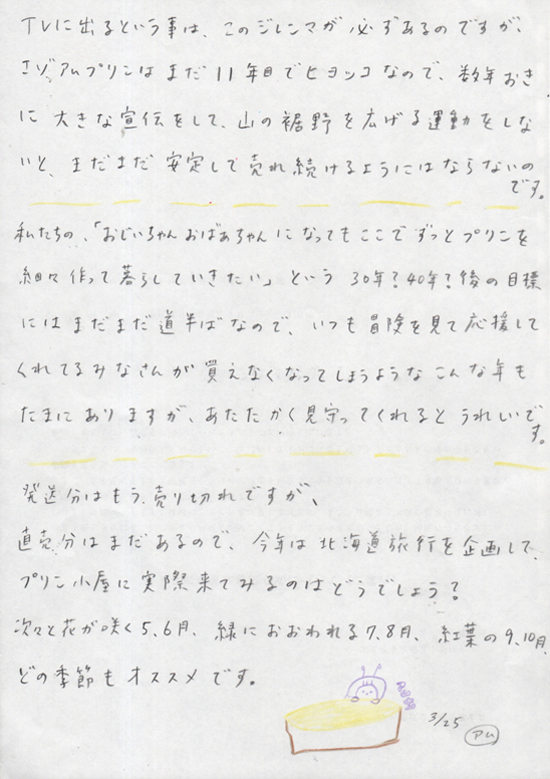 TVに出るという事は、このジレンマが必ずあるのですが、
エゾアムプリンはまだ11年目でヒヨッコなので、数年おき
に大きな宣伝をして、山の裾野を広げる運動をしな
いと、まだまだ安定して売れ続けるようにはならないの
です。
私たちの、「おじいちゃんおばあちゃんになってもここでずっとプリンを
細々作って暮らしていきたい」という30年?40年?後の目標
にはまだまだ道半ばなので、いつも冒険を見て応援して
くれてるみなさんが買えなくなってしまうようなこんな年も
たまにありますが、あたたかく見守ってくれるとうれしいで
す。
発送分はもう売り切れですが、
直売分はまだあるので、今年は北海道旅行を企画して、
プリン小屋に実際来てみるのはどうでしょう?
次々と花が咲く5、6月、緑におおわれる7、8月、紅葉の9、10月、
どの季節もオススメです。
3/25
アム